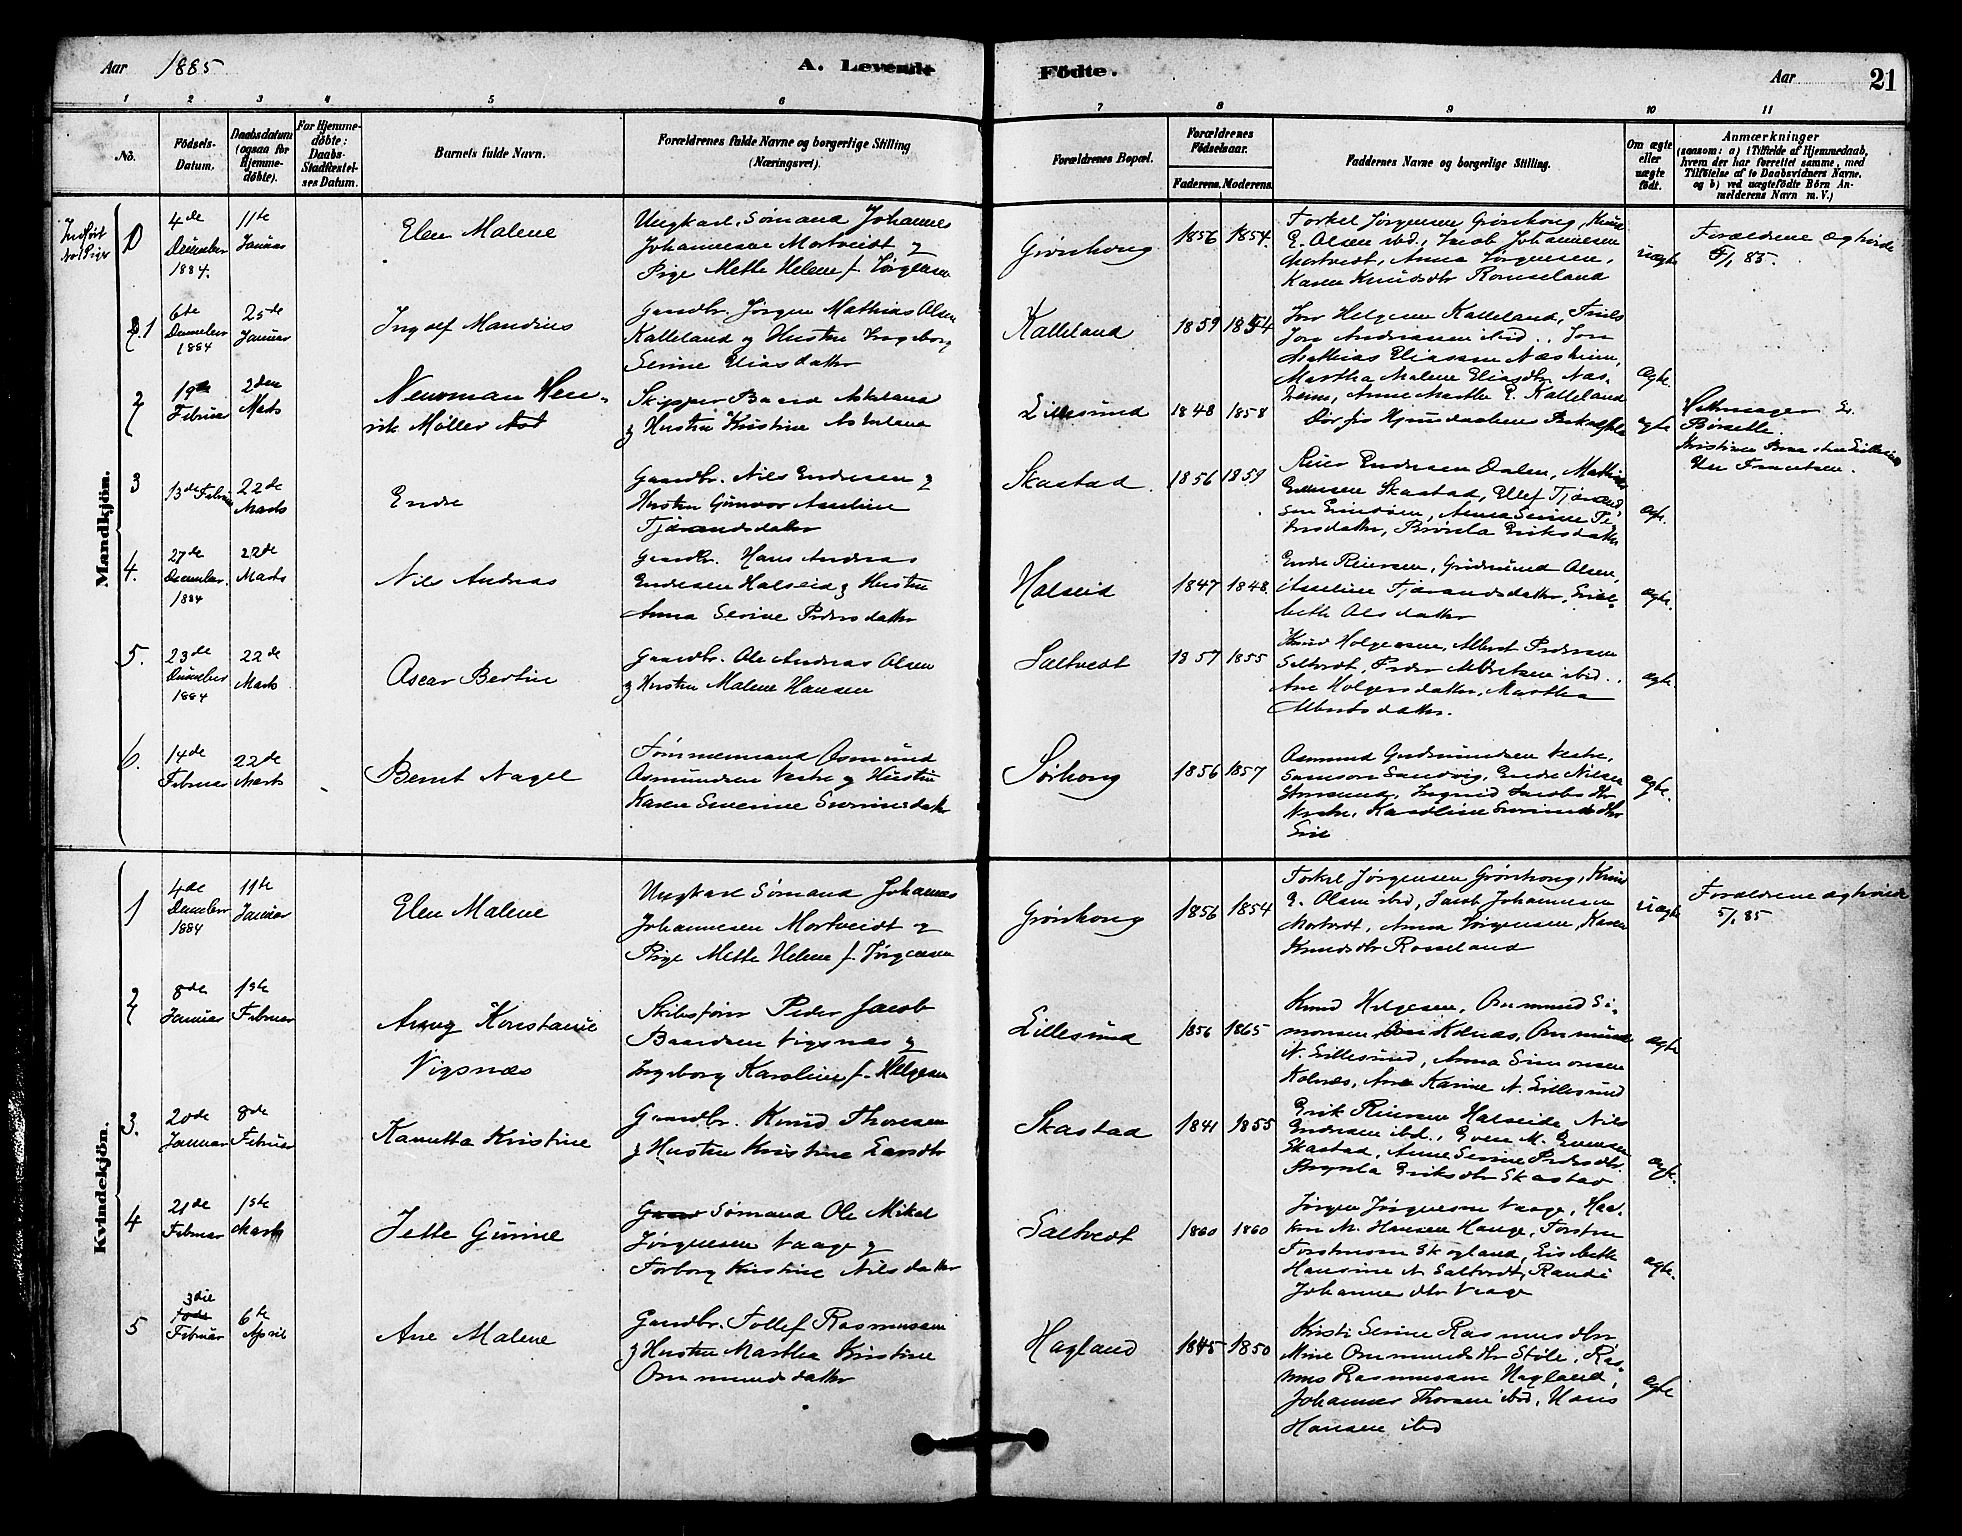 Aar 1885
A. Levende
Födte.
Aar
21
1 2 3 4 5 6 7 8 9 10 11
No.
Födsels-
Datum.
Daabsdatum
(ogsaa for
Hjemme-
döbte).
For Hjemme-
döbte:
Daabs-
Stadfæstel-
ses Datum.
Barnets fulde Navn.
Forældrenes fulde Navne og borgerlige Stilling
(Næringsvei).
Forældrenes Bopæl.
Forældrenes
Födselsaar.
Faderens. Moderens.
Faddernes Navne og borgerlige Stilling.
Om ægte
eller
uægte
födt.
Anmærkninger
(saasom: a) i Tilfælde af Hjemmedaab,
hvem der har forrettet samme, med
Tilföielse af to Daabsvidners Navne.
og b) ved uægtefödte Börn An-
melderens Navn m. V.)
Mandkjön.
4de
December
1884.
11te
Januar
Elen Malene
Ungkarl, Sømand Johannes
Johannesen Mortveidt og
Pige Mette Helene f. Jørgensen
Grønhong
1856 1854.
Torkel Jørgensen Grønhong, Knud
E. Olsen ibd., Jacob Johannesen
Mortvedt, Anna Jørgensen,
Karen Knudsdtr
uægte
Forældrene
1
6te
December
1884
25de
Januar
Ingolf Mandius
Gaardbr. Jørgen Mathias Olsen
Kalleland og Hustru Ingeborg
Serine Eliasdatter
Kalleland
1859 1854
Jon Helgesen Kalleland,
Andreasen ibid.,
Mathias Eliassen Næsheim,
Martha Malene Eliasdtr Næs-
heim, Anne Martha E. Kalleland
Ægte.
2
19de
Februar
2den
Marts
Newman Hen-
rik Møller
Skipper Baard Askeland
og Hustru Kristine Askeland
Lillesund
1848 1858
ægte
3
13de Februar
22de
Marts
Endre
Gaardbr. Nils Endresen og
Hustru Gunvor Aseline
Tjørandsdatter
Skastad.
1856 1859
Reier Endresen Dalen, Mathias
Skastad, Ellef
Anna Serine Pe-
dersdatter, Eriksdatter
ægte.
4.
27de
December.
1884
22de
Marts
Nils Andreas
Gaardbr. Hans Andreas
Endresen Halseid og Hustru
Anna Serine Pedersdatter
Halseid
1847 1848.
Endre Reiersen, Gudmund Olsen,
Aseline Tjørandsdatter, Elisa-
beth Olsdatter
ægte.
5.
23de
December
1884
22de
Marts
Oscar Bertin
Gaardbr. Ole Andreas Olsen
og Hustru Malene Hansen
Saltvedt
1857 1855
Knud Holgersen, Albert Pedersen
Saltvedt, Peder Albertsen ibid.,
Ane Holgersdatter, Martha
Albertsdatter.
ægte.
6.
14de
Februar
22de
Marts
Bernt Nagel
Tømmermand Osmund
Osmundsen og Hustru
Karen Severine Severinsdatter
Sørhong
1856 1857
Osmund Gudmundsen
Samson Sandvig, Endre Nilsen
Ingrid Jacobsdtr
Karoline Severinsdtr
ægte.
Kvindekjön.
1
4de
December
1884
11te
Januar
Elen Malene
Ungkarl Sømand Johannes
Johannesen Mortveidt og
Pige Mette Helene f. Jørgensen
Grønhong
1856 1854
Torkel Jørgensen Grønhong, Knud
E. Olsen ibid, Jacob Johannesen
Mortvedt, Anna Jørgensen, Karen
Knudsdtr Rosseland
uægte
Forældrene
5/1 85
2
8de
Januar
1ste
Februar
Konstanse
Vigsnæs
Skibsfører Peder Jacob
Baardsen Vigsnæs og
Ingeborg Karoline f. Helgesen
Lillesund
1856 1865
Knud Helgesen, Ommund Si-
monsen Kolnæs, Ommund
N. Lillesund, Anna Simonsen
Kolnæs, Ane Karine N. Lillesund
ægte
3.
20de
Januar
8de
Februar
Kanutta Kristine
Gaardbr. Knud Thoresen
og Hustru Kristine Larsdtr
Skastad
1841 1855
Erik Reiersen Halseide, Nils
Endresen ibd., Even M. Evensen
Skastad, Anne Serine Pedersdtr.
Eriksdtr Skastad
ægte.
4
21de
Februar
1ste
Marts
Jette Gurine
Sømand Ole Mikal
Jørgensen Vaage og
Torborg Kristine Nilsdatter
Saltvedt
1860 1860
Jørgen Jørgensen Vaage, Haa-
kon M. Hansen Hauge, Torsten
Torstensen Skogland, Lisbeth
Hansine N. Saltvedt, Randi
Johannesdtr Vaage
ægte.
5
3die
Februar
6te
April
Ane Malene
Gaardbr. Tollef Rasmussen
og Hustru Martha Kristine
Ommundsdatter
Hagland
1845 1850
Kristi Serine Rasmusdtr
Mine Ommundsdtr Støle, Ras-
mus Rasmussen Hagland,
Johannes Thorsen ibid, Hans
Hansen ibid
ægte